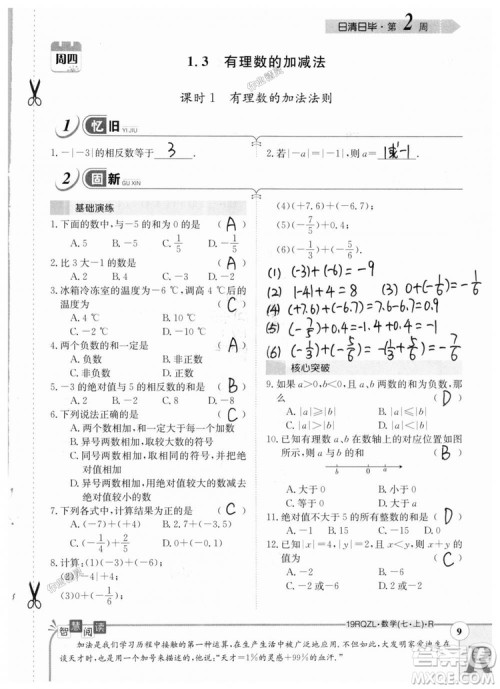 日清日毕·第2周
周四
1.3 有理数的加减法
课时1 有理数的加法法则
1 忆旧 YI JIU
1. -|-3|的相反数等于 3 .
2. 若|-a|=|-1|,则a=
2 固新 GU XIN
基础演练
1. 下面的数中,与-5的和为0的是 ( A )
A. 5 B. -5 C. 1/5 D. -1/5
2. 比3大-1的数是 ( A )
A. 2 B. 4 C. -3 D. -2
3. 冰箱冷冻室的温度为-6 ℃,调高4 ℃后的温度为 ( C )
A. 4 ℃ B. 10 ℃
C. -2 ℃ D. -10 ℃
4. 两个负数的和一定是 ( A )
A. 负数 B. 非正数
C. 非负数 D. 正数
5. -3的绝对值与-5的相反数的和是 ( B )
A. 2 B. 8 C. -2 D. -8
6. 下列说法正确的是 ( D )
A. 两个数相加,和大于任一个加数
B. 异号两数相加,取较大数的符号
C. 同号两数相加,取相同的符号,并把绝对值相加
D. 异号两数相加,用绝对值较大的数减去绝对值较小的数
7. 下列各式中,计算结果为正的是 ( C )
A. (-7)+(+4) B. 2.7+(-3.5)
8. 计算:(1)(-3)+(-6);
(2)|-4|+4;
(4)(+7.6)+(-6.7);
(5)(-7/5)+0.4;
(6)(-1/3)+(-5/6).
(1) (-3)+(-6)=-9
(2) |-4|+4=8 (3) 0+(-1/6)=-1/6
(4) (+7.6)+(-6.7)=7.6-6.7=0.9
(5) (-7/5)+0.4=-1.4+0.4=-1
(6) (-1/3)+(-5/6)=-(1/3+5/6)=-7/6
核心突破
9. 如果a>0,b<0,且a,b两数的和为负数,那么 ( D )
A. |a|≥|b| B. |a|≤|b|
C. |a|>|b| D. |a|<|b|
10. 已知有理数a,b在数轴上的对应位置如图所示,则a与b的和 ( A )
A. 大于0 B. 小于0
C. 等于0 D. 小于a
11. 绝对值不大于5的所有整数的和为 ( C )
A. -1 B. 1 C. 0 D. 6
12. 已知|x|=4,|y|=5,且x<y,则x+y= .
智慧阅读
加法是我们学习历程中接触的第一种运算,在生产生活中被广泛地应用.大发明家爱迪生在谈天才时就用一个加号来描述,他说:"天才=1%的灵感+99%的血汗."
19RQZL·数学(七·上)·R
9